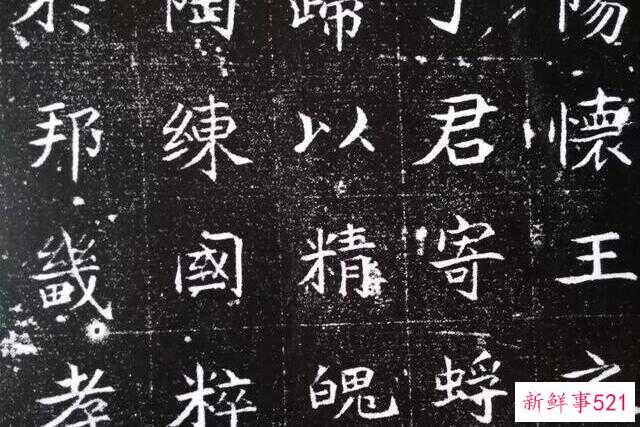 陽懷王之
君寄蜉
以精魄
陶練國粹
於邦畿孝
新鲜事521